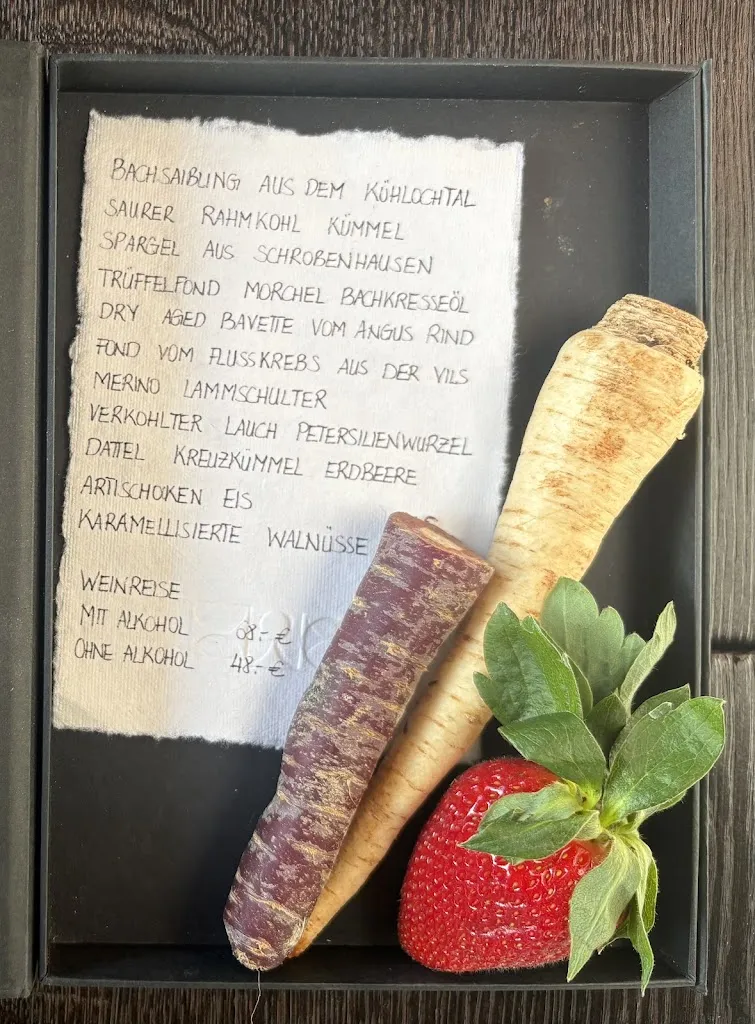 BACHSAIBLING AUS DEM KÜHLOCHTAL
SAURER RAHMKOHL KÜMMEL
SPARGEL AUS SCHROBENHAUSEN
TRÜFFELFOND MORCHEL BACHKRESSEÖL
DRY AGED BAVETTE VOM ANGUS RIND
FOND VOM FLUSSKREBS AUS DER VILS
MERINO LAMMSCHULTER
VERKOHLTER LAUCH PETERSILIENWURZEL
DATTEL KREUZKÜMMEL ERDBEERE
ARTISCHOKEN EIS
KARAMELLISIERTE WALNÜSSE
WEINREISE
MIT ALKOHOL 68.- €
OHNE ALKOHOL 48.- €